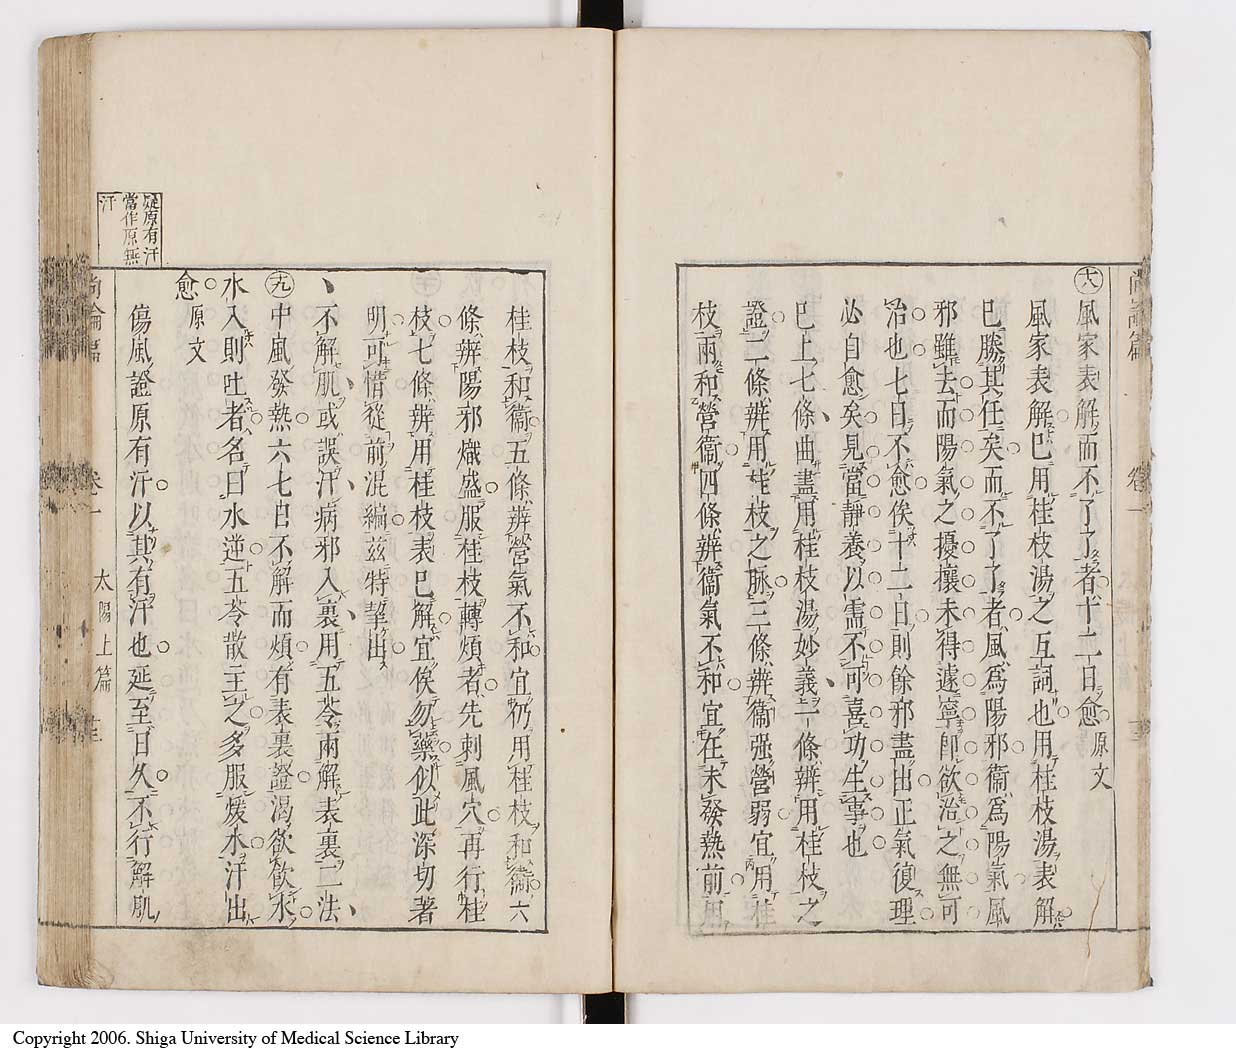 尚論篇
卷一
㊅ 風家表解而不了了者十二日愈原文
風家表解已用桂枝湯之互詞也用桂枝湯表解
已勝其任矣而不了了者風爲陽邪衞爲陽氣風
邪雖去而陽氣之擾攘未得遽寧卽欲治之無可
治也七日不愈俟十二日則餘邪盡出正氣復理
必自愈矣見當靜養以需不可喜功生事也
已上七條曲盡用桂枝湯妙義一條辨用桂枝之
證二條辨用桂枝之脉三條辨衞强營弱宜用桂
枝兩和營衞四條辨衞氣不和宜在未發熱前用
桂枝和衞五條辨營氣不和宜仍用桂枝和衞六
條辨陽邪熾盛服桂枝轉煩者先刺風穴再行桂
枝七條辨用桂枝表已解宜俟勿藥似此深切著
明可惜從前混編茲特挈出
不解肌或誤汗病邪入裏用五苓兩解表裏二法
九 中風發熱六七日不解而煩有表裏證渴欲飮水
水入則吐者名曰水逆五苓散主之多服煖水汗出
愈原文
傷風證原有汗以其有汗也延至日久不行解肌
疑原有汗
當作原無
汗
尚論篇
卷一
太陽上篇
Copyright 2006. Shiga University of Medical Science Library